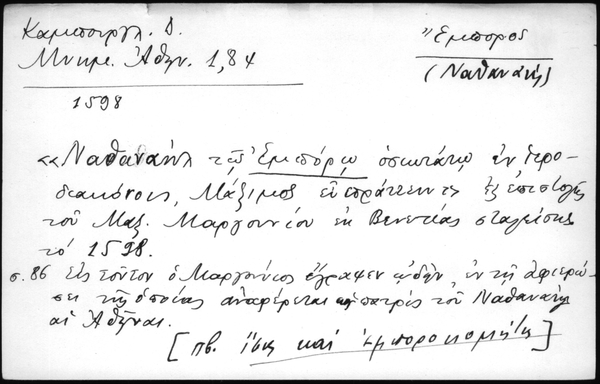 Καμπούργλ. Δ.
Μνημ. Ἀθην. 1,84
Ἔμπορος
(Ναθαναήλ)
1598
«Ναθαναήλ τῷ Ἐμπόρῳ ὁσιωτάτῳ ἐν ἱερο-
διακόνοις, Μάξιμος εὖ πράττειν» ἐξ ἐπιστολῆς
τοῦ Μαξ. Μαργουνίου ἐκ Βενετίας σταλείσης
τό 1598.
σ. 86 Εἰς τοῦτον ὁ Μαργούνιος ἔγραψεν ᾠδήν, ἐν τῇ ἀφιερώ-
σει τῆς ὁποίας ἀναφέρεται ὡς πατρίς τοῦ Ναθαναήλ
αἱ Ἀθῆναι.
[πβ. ἴσως καί ἐμποροκομήτης]